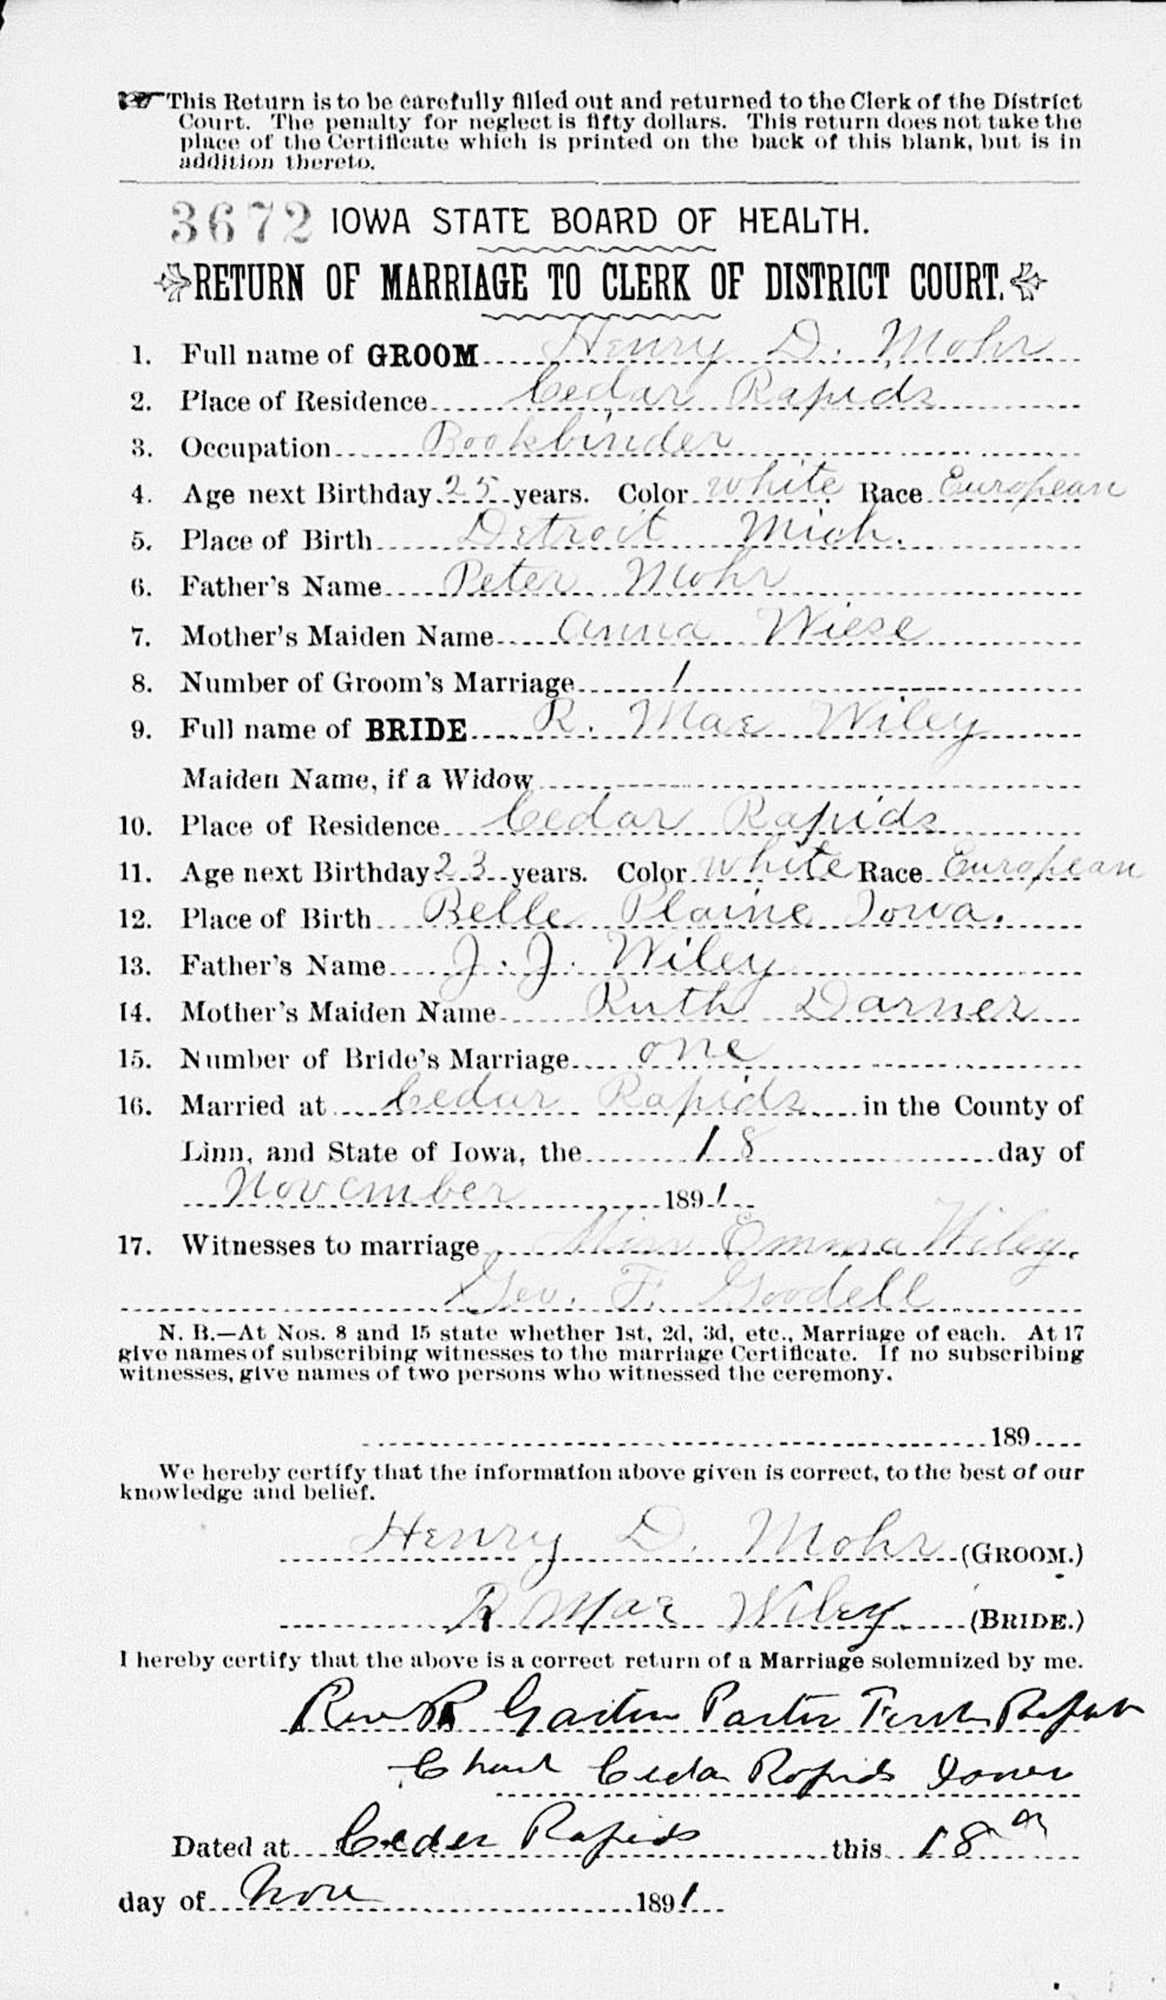 This Return is to be carefully filled out and returned to the Clerk of the District
Court. The penalty for neglect is fifty dollars. This return does not take the
place of the Certificate which is printed on the back of this blank, but is in
addition thereto.
3672 IOWA STATE BOARD OF HEALTH.
RETURN OF MARRIAGE TO CLERK OF DISTRICT COURT.
1. Full name of GROOM Henry D. Mohr
2. Place of Residence Cedar Rapids
3. Occupation Bookbinder
4. Age next Birthday 25 years. Color white Race European
5. Place of Birth Detroit Mich.
6. Father's Name Peter Mohr
7. Mother's Maiden Name Anna Wiese
8. Number of Groom's Marriage 1
9. Full name of BRIDE R. Mae Wiley
Maiden Name, if a Widow
10. Place of Residence Cedar Rapids
11. Age next Birthday 23 years. Color white Race European
12. Place of Birth Belle Plaine Iowa.
13. Father's Name J. J. Wiley
14. Mother's Maiden Name Ruth Darner
15. Number of Bride's Marriage one
16. Married at Cedar Rapids in the County of
Linn, and State of Iowa, the 18 day of
November 1891
17. Witnesses to marriage Miss Emma Wiley.
Geo. F. Goodell
N. B.—At Nos. 8 and 15 state whether 1st, 2d, 3d, etc., Marriage of each. At 17
give names of subscribing witnesses to the marriage Certificate. If no subscribing
witnesses, give names of two persons who witnessed the ceremony.
189
We hereby certify that the information above given is correct, to the best of our
knowledge and belief.
Henry D. Mohr (GROOM.)
R Mae Wiley (BRIDE.)
I hereby certify that the above is a correct return of a Marriage solemnized by me.
Rev Pastor First
Cedar Rapids Iowa
Dated at Cedar Rapids this 18
day of Nov 1891